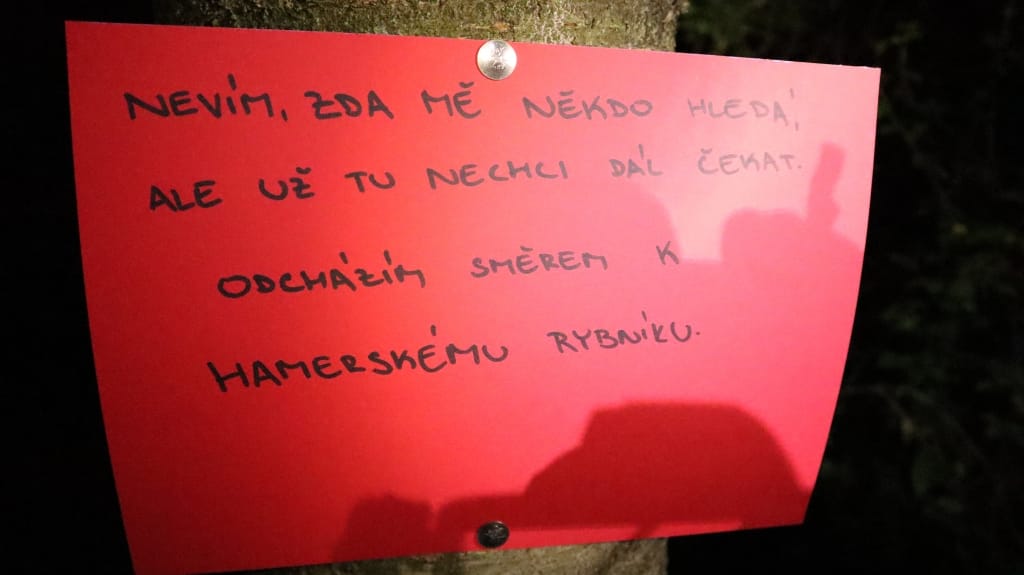 NEVÍM, ZDA MĚ NĚKDO HLEDÁ,
ALE UŽ TU NECHCI DÁL ČEKAT.
ODCHÁZÍM SMĚREM K
HAMERSKÉMU RYBNÍKU.